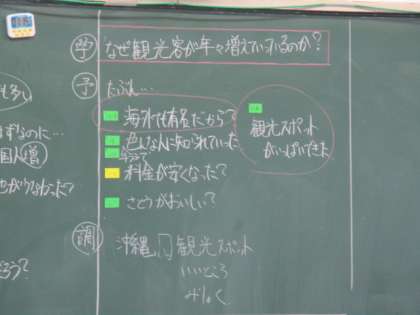 学 なぜ観光客が年々増えているのか?
予 たぶん…
海外でも有名だから?
色んな人に知られていった
料金が安くなった?
さとうがおいしい?
観光スポット
がいっぱいできた
調 沖縄 観光スポット
いいところ
みりょく
国人増